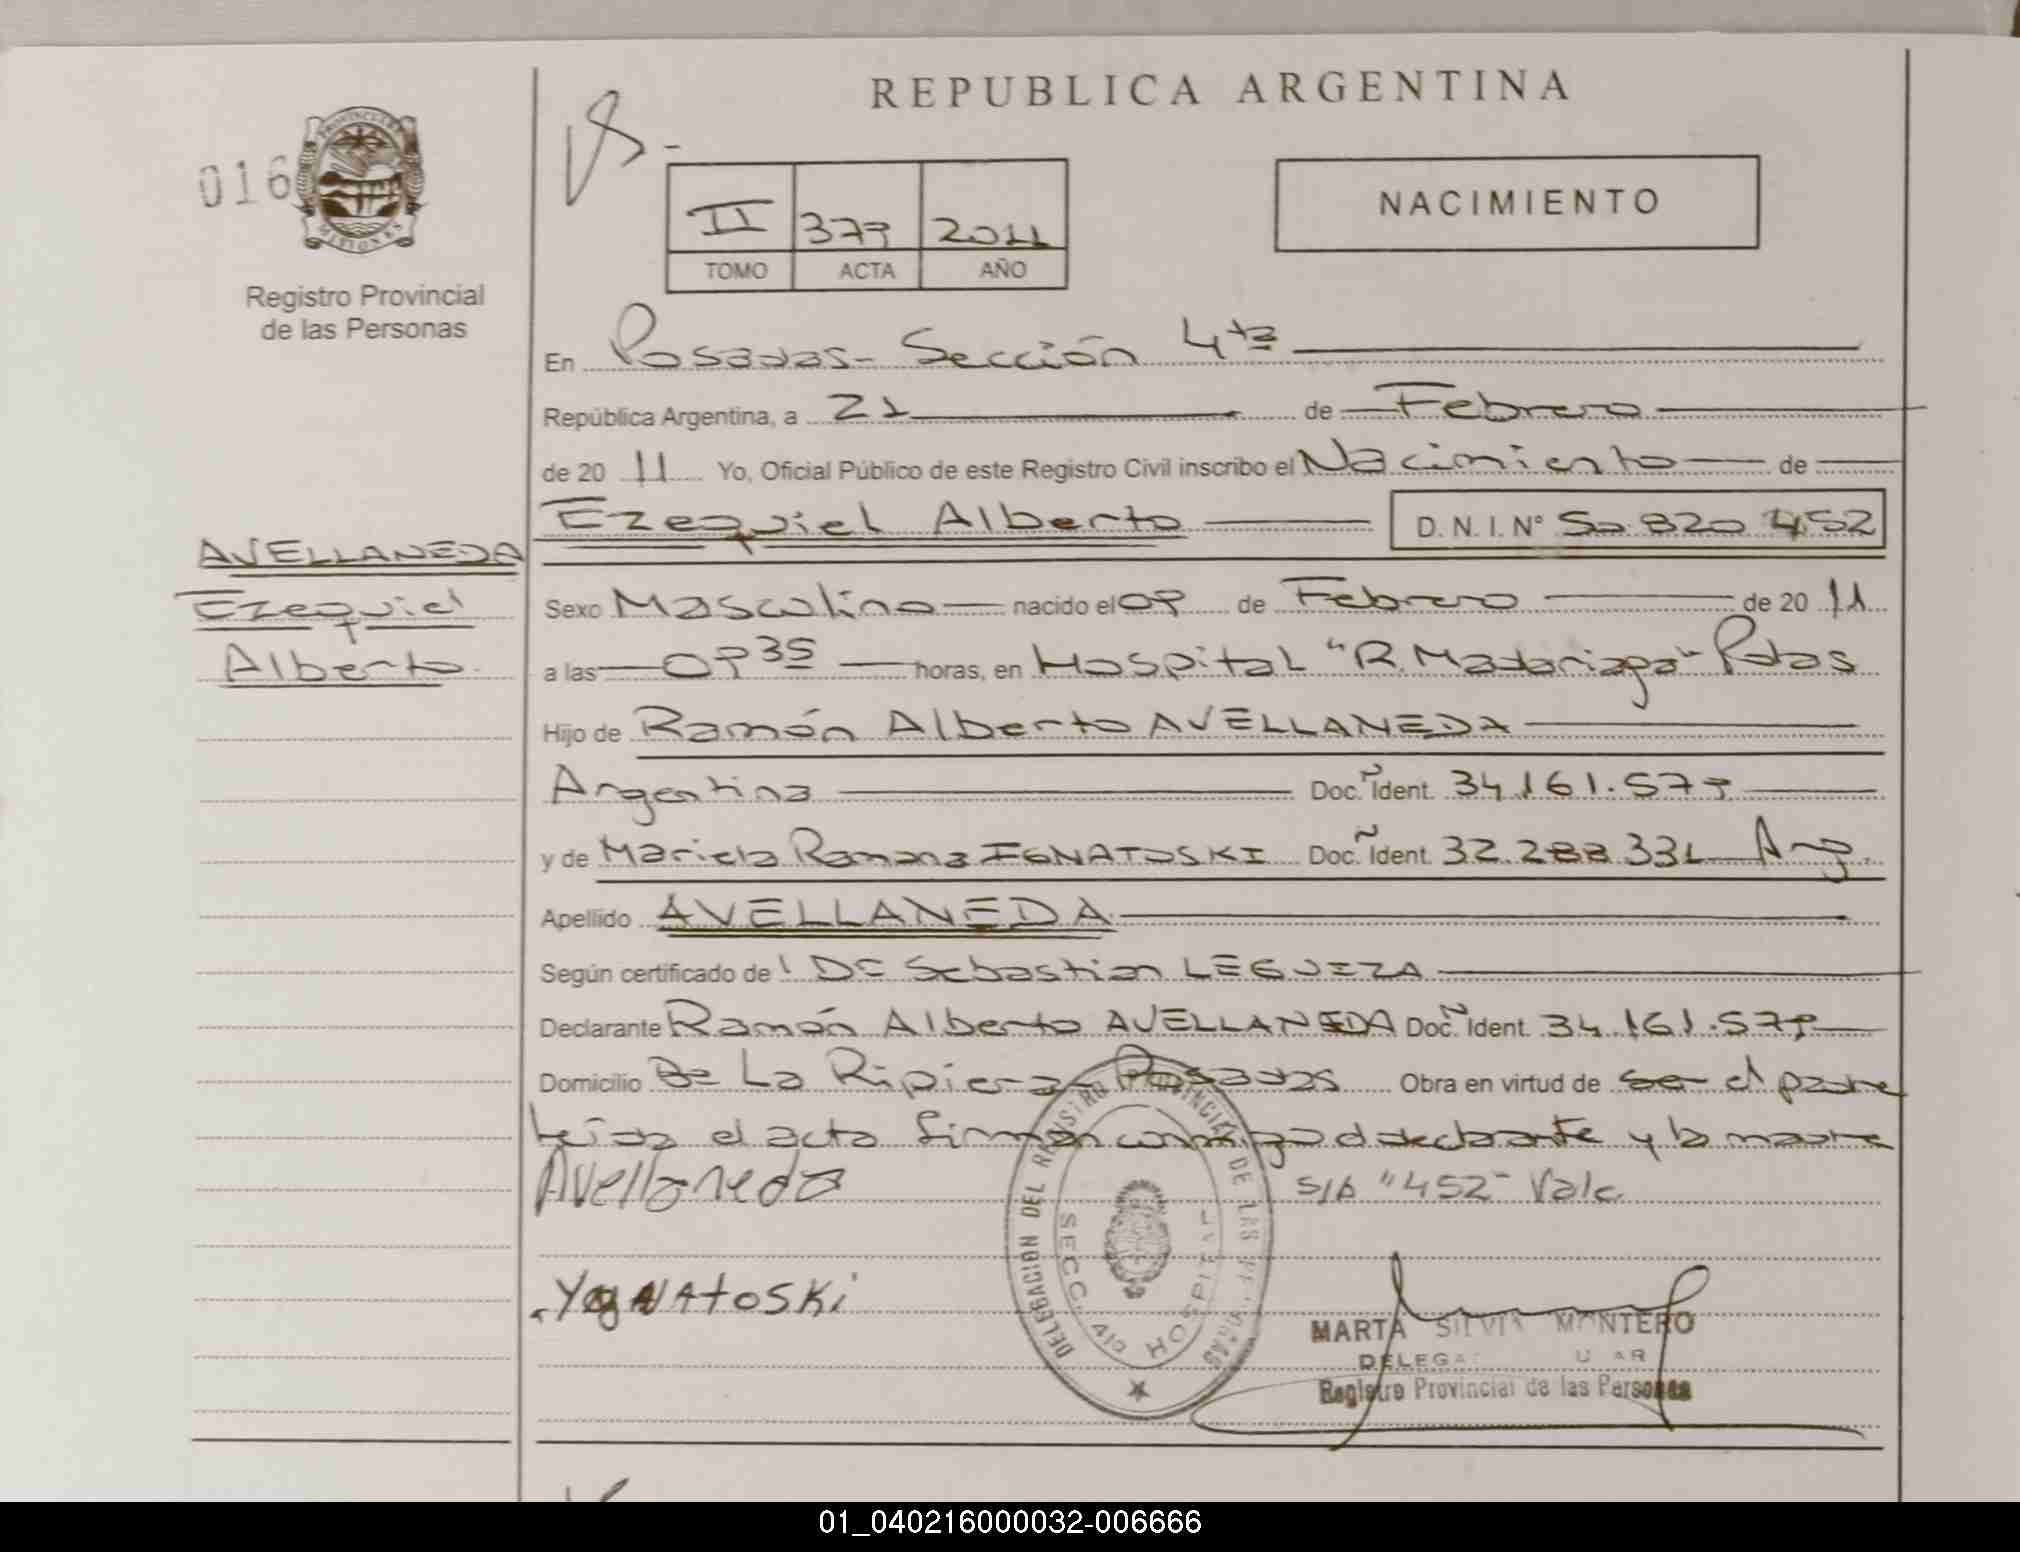 REPUBLICA ARGENTINA
016
PROVINCIA DE
MISIONES
Registro Provincial
de las Personas
II 379 2011
TOMO ACTA AÑO
NACIMIENTO
En Posadas - Sección 4ta
República Argentina, a 21 de Febrero
de 20 11 Yo, Oficial Público de este Registro Civil inscribo el Nacimiento de
Ezequiel Alberto D. N. I. N° 50.820.452
AVELLANEDA
Ezequiel
Alberto
Sexo Masculino nacido el 09 de Febrero de 20 11
a las 09 35 horas, en Hospital "R. Madariaga" Pdas
Hijo de Ramón Alberto AVELLANEDA
Argentina Doc. Ident. 34.161.579
y de Mariela Romana IGNATOSKI Doc. Ident. 32.288.331 Arg.
Apellido AVELLANEDA
Según certificado de Sebastian LEGUIZA
Declarante Ramón Alberto AVELLANEDA Doc. Ident. 34.161.579
Domicilio Bº La Ripiera - Posadas Obra en virtud de ser el padre
Leída el acta firman conmigo el declarante y la madre
Avellaneda S/A "452" Vale
YgNAtoSKi
DELEGACION DEL REGISTRO PROVINCIAL DE LAS PERSONAS
SECC. 4ta HOSPITAL
MARTA SILVIA MONTERO
Registro Provincial de las Personas
01_040216000032-006666